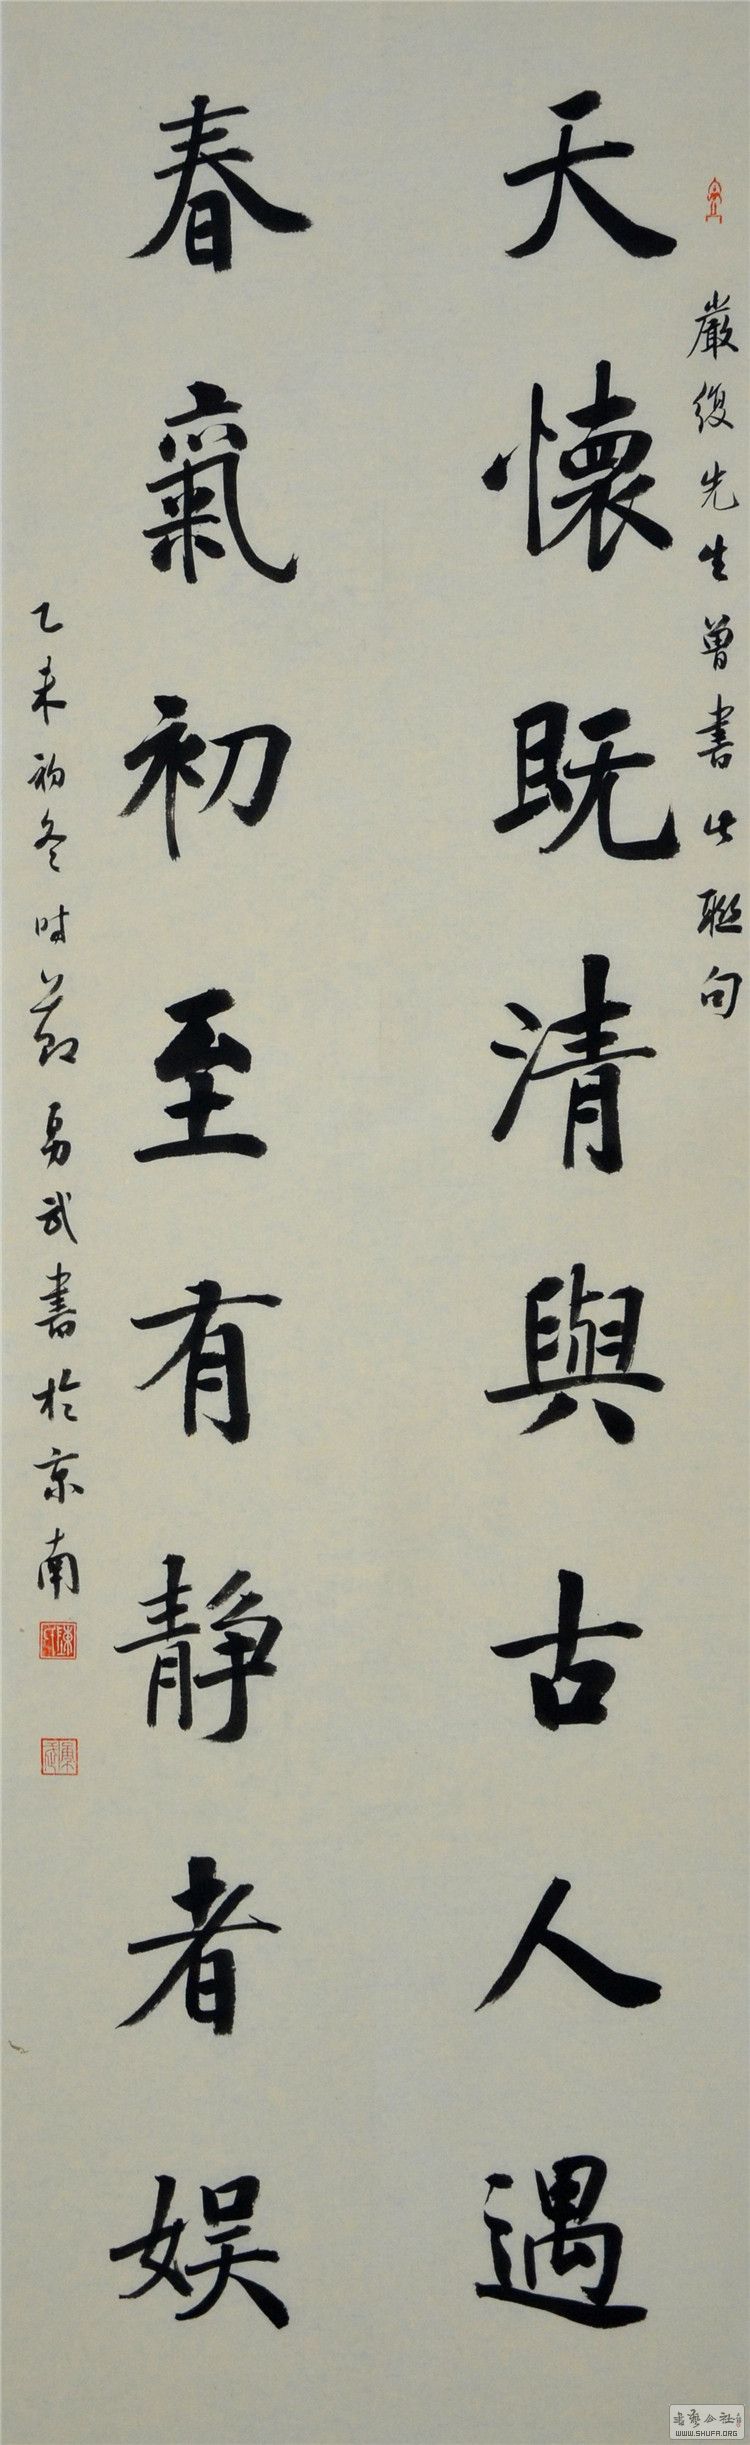 嚴復先生曾書此聯句
天懷既清與古人遇
春氣初至有靜者娱
乙未初冬時節勇武書於京南
書藝公社
WWW.SHUFA.ORG